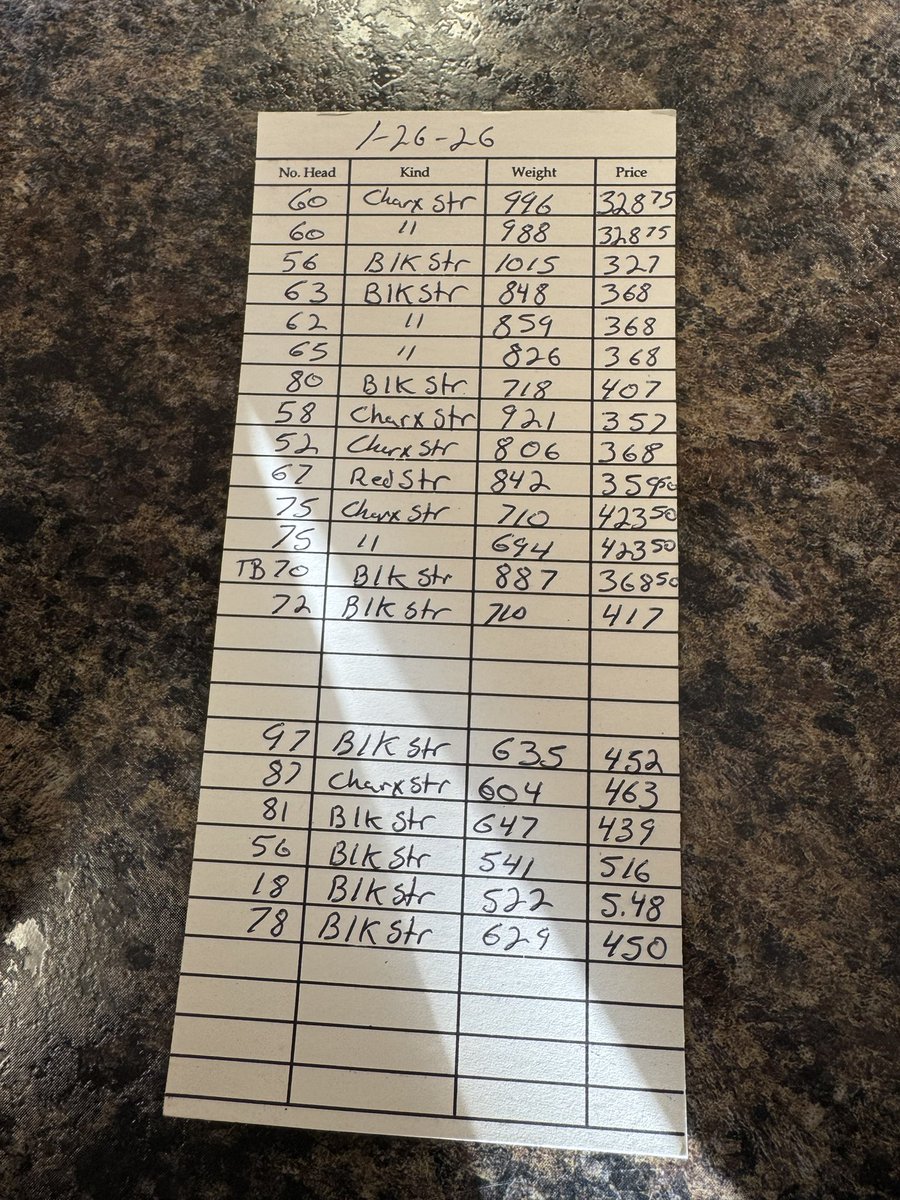 1-26-26
No. Head Kind Weight Price
60 Charx Str 996 328 75
60 " 988 328 75
56 Blk Str 1015 327
63 Blk Str 848 368
62 " 859 368
65 " 826 368
80 Blk Str 718 407
58 Charx Str 921 357
52 Charx Str 806 368
67 Red Str 842 359 50
75 Charx Str 710 423 50
75 " 694 423 50
TB 70 Blk Str 887 368 50
72 Blk Str 710 417
97 Blk Str 635 452
87 Charx Str 604 463
81 Blk Str 647 439
56 Blk Str 541 516
18 Blk Str 522 5.48
78 Blk Str 629 450